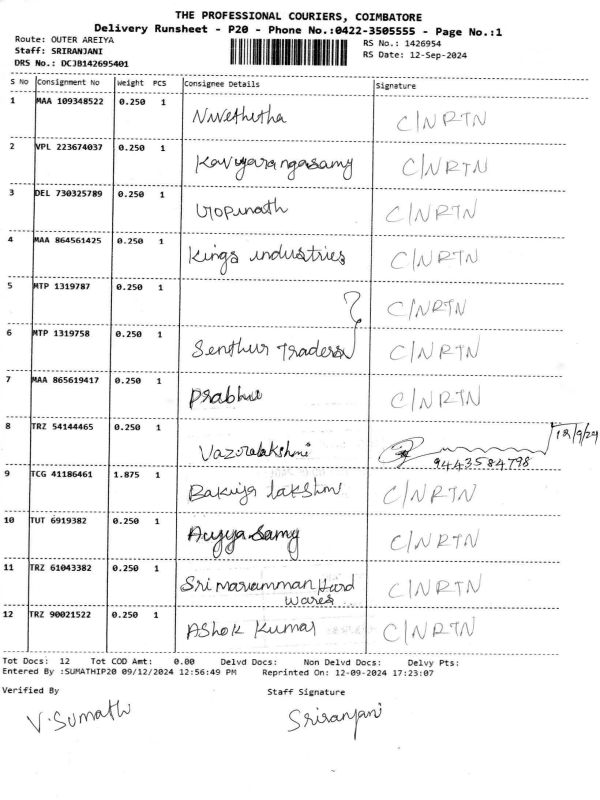 THE PROFESSIONAL COURIERS, COIMBATORE
Delivery Runsheet - P20 - Phone No.:0422-3505555 - Page No.:1
Route: OUTER AREIYA
RS No.: 1426954
Staff: SRIRANJANI
RS Date: 12-Sep-2024
DRS No.: DCJB142695401
S No Consignment No Weight PCS Consignee Details Signature
1 MAA 109348522 0.250 1 Nivethitha C/N RTN
2 VPL 223674037 0.250 1 Kavyarangasamy C/N RTN
3 DEL 730325789 0.250 1 Gopinath C/N RTN
4 MAA 864561425 0.250 1 Kings industries C/N RTN
5 MTP 1319787 0.250 1 C/N RTN
6 MTP 1319758 0.250 1 Senthur Traders C/N RTN
7 MAA 865619417 0.250 1 Prabhu C/N RTN
8 TRZ 54144465 0.250 1 12/9/24
9443584798
9 TCG 41186461 1.875 1 lakshmi C/N RTN
10 TUT 6919382 0.250 1 Ayyasamy C/N RTN
11 TRZ 61043382 0.250 1 Sri mariamman Hard C/N RTN
wares
12 TRZ 90021522 0.250 1 Ashok Kumar C/N RTN
Tot Docs: 12 Tot COD Amt: 0.00 Delvd Docs: Non Delvd Docs: Delvy Pts:
Entered By :SUMATHIP20 09/12/2024 12:56:49 PM Reprinted On: 12-09-2024 17:23:07
Verified By Staff Signature
V.Sumathi Sriranjani